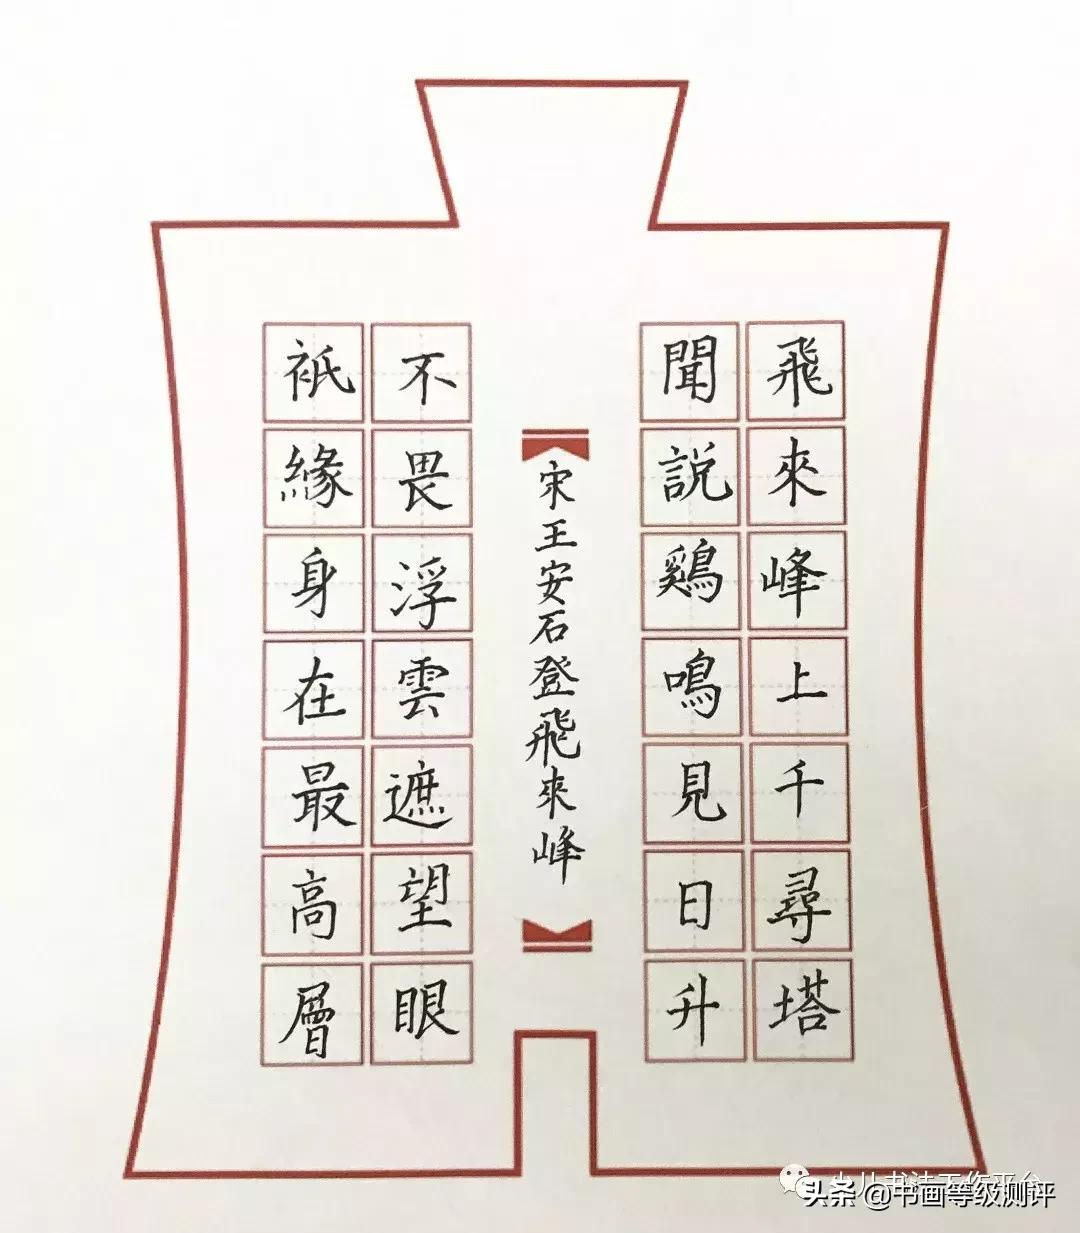 飛來峰上千尋塔
聞説鷄鳴見日升
宋王安石登飛來峰
不畏浮雲遮望眼
衹緣身在最高層
头条 @书画等级测评